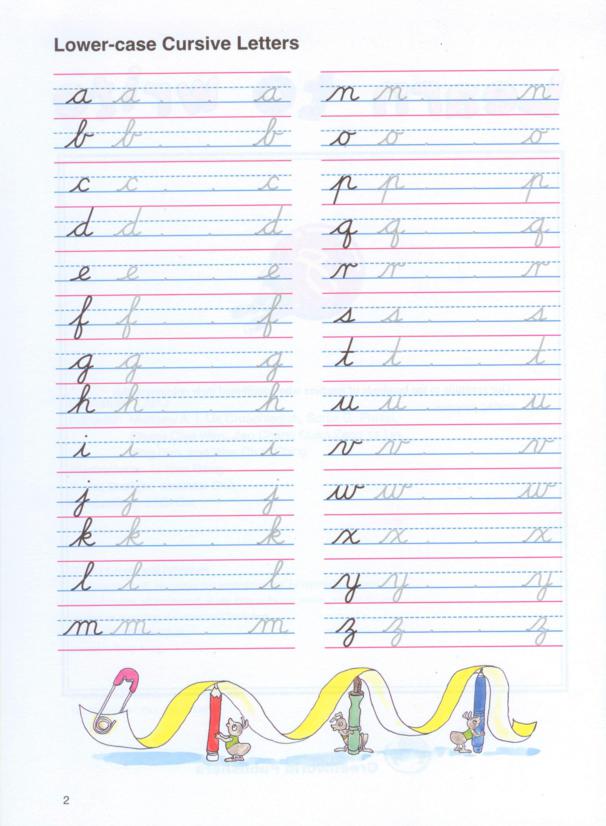 Lower-case Cursive Letters
a a a
b b b
c c c
d d d
e e e
f f f
g g g
h h h
i i i
j j j
k k k
l l l
m m m
n n n
o o o
p p p
q q q
r r r
s s s
t t t
u u u
v v v
w w w
x x x
y y y
z z z
2